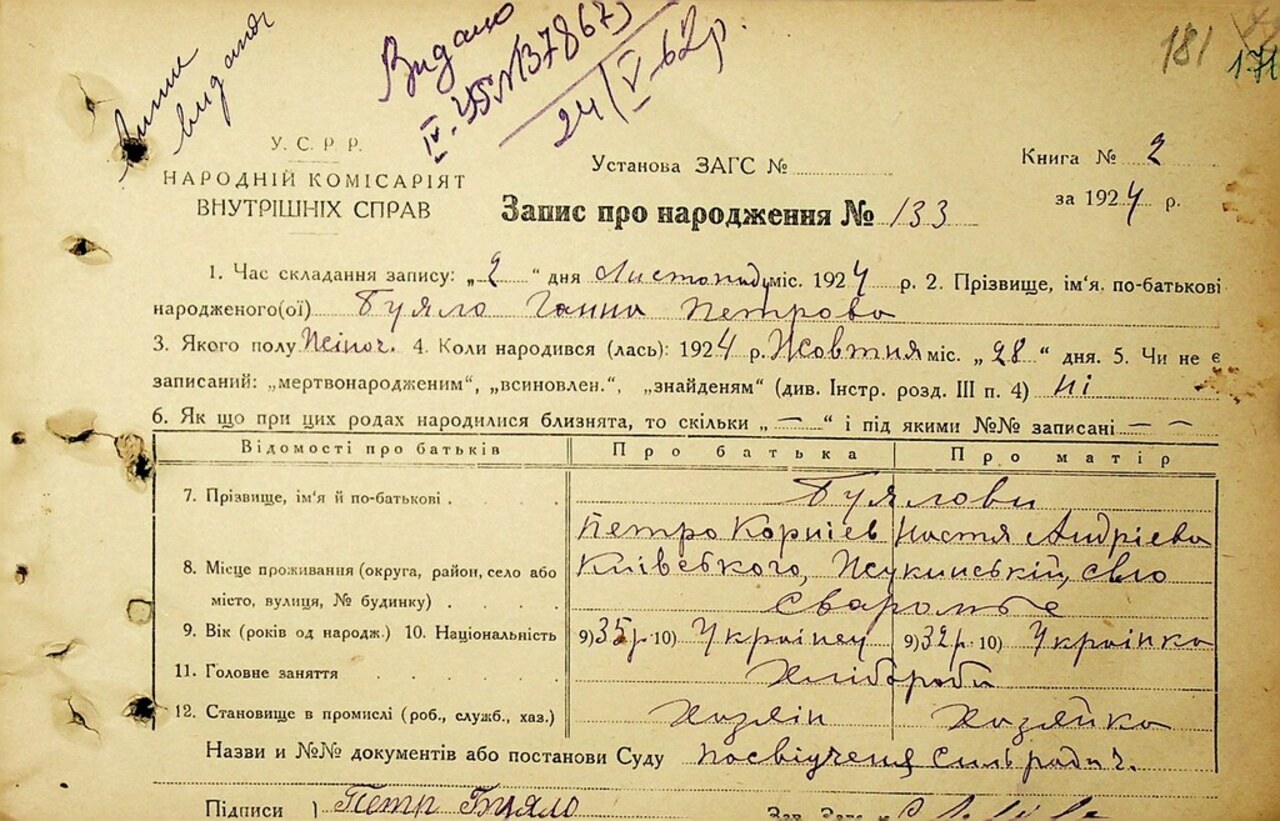 181
171
Видано
24/V-62р.
У. С. Р. Р.
НАРОДНІЙ КОМІСАРІЯТ
ВНУТРІШНІХ СПРАВ
Установа ЗАГС №
Книга № 2
за 1924 р.
Запис про народження № 133
1. Час складання запису: „2“ дня Листопаду міс. 1924 р. 2. Прізвище, ім'я, по-батькові
народженого(ої) Буяло Ганна Петрова
3. Якого полу Жіноч. 4. Коли народився (лась): 1924 р. Жовтня міс. „28“ дня. 5. Чи не є
записаний: „мертвонародженим“, „всиновлен.“, „знайденям“ (див. Інстр. розд. III п. 4) ні
6. Як що при цих родах народилися близнята, то скільки „—“ і під якими №№ записані — —
Відомості про батьків Про батька Про матір
7. Прізвище, ім'я й по-батькові . Буялови
Петро Корнієв Настя Андрієва
8. Місце проживання (округа, район, село або Київського, Жукинський, село
місто, вулиця, № будинку) . . . . Сваромьє
9. Вік (років од народж.) 10. Національність 9) 35р. 10) Українец 9) 32р. 10) Українка
11. Головне заняття . . . . . Хлібороби
12. Становище в промислі (роб., служб., хаз.) Хазяін Хазяйка
Назви и №№ документів або постанови Суду посвідченя Сильради ч.
Підписи } Петр Буяло